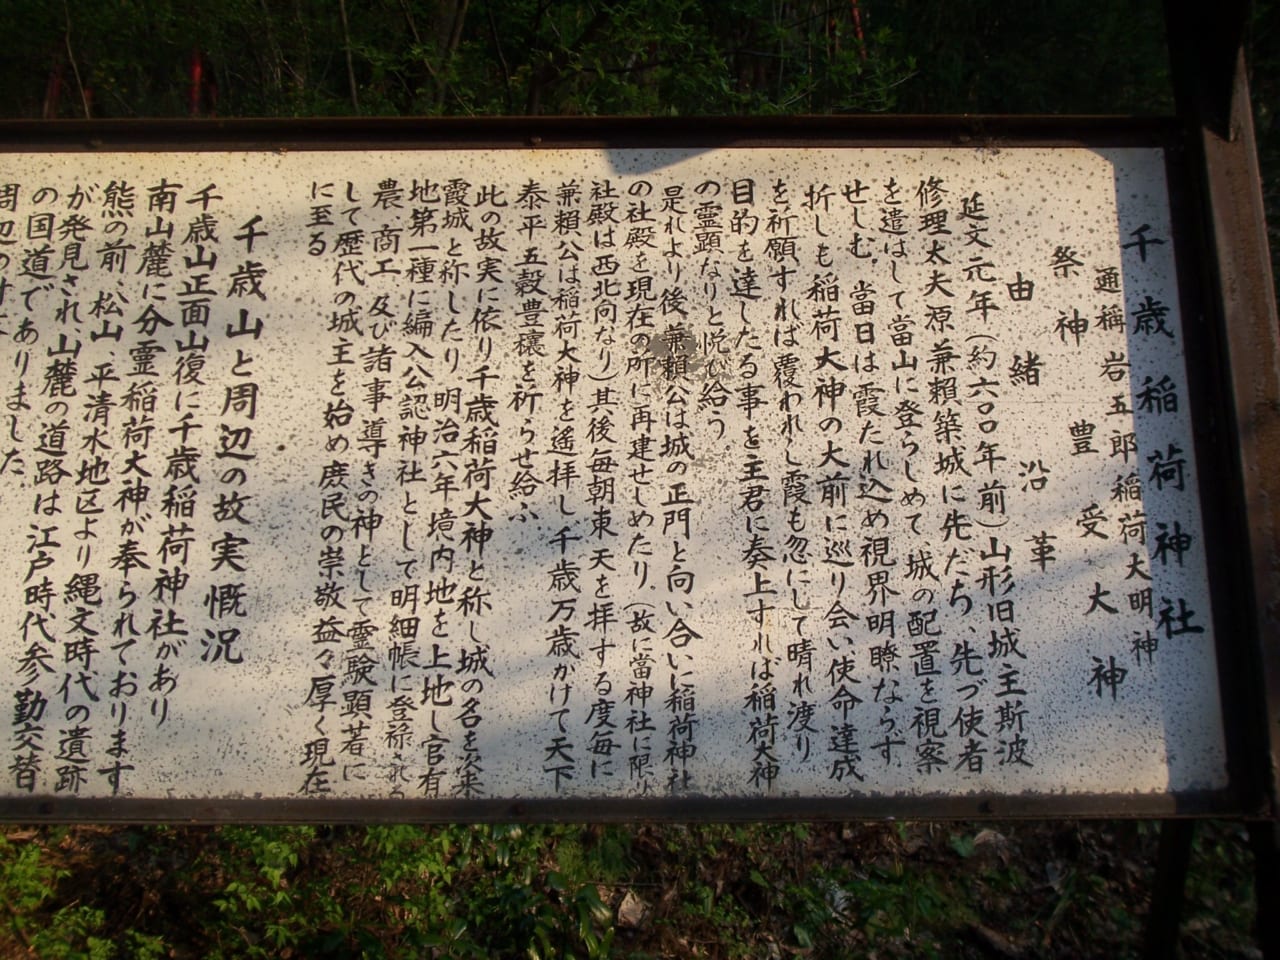 千歳稲荷神社
通稱岩五郎稲荷大明神
祭神　豊受大神
由緒沿革
延文元年（約六〇〇年前）山形旧城主斯波
修理太夫源兼頼築城に先だち、先づ使者
を遣はして當山に登らしめて、城の配置を視察
せしむ。當日は霞たれ込め視界明瞭ならず
折しも稲荷大神の大前に巡り会い使命達成
を祈願すれば覆われし霞も忽にして晴れ渡り
目的を達したる事を主君に奏上すれば稲荷大神
の霊顕なりと悦び給う
是れより後兼頼公は城の正門と向い合いに稲荷神社
の社殿を現在の所に再建せしめたり。（故に當神社に限り
社殿は西北向なり）其後毎朝東天を拝する度毎に
兼頼公は稲荷大神を遙拝し千歳万歳かけて天下
泰平五穀豊穣を祈らせ給ふ
此の故実に依り千歳稲荷大神と称し城の名を次来
霞城と称したり明治六年境内地を上地し官有
地第一種に編入公認神社として明細帳に登禄される
農、商工、及び諸事導きの神として霊験顕著に
して歴代の城主を始め庶民の崇敬益々厚く現在
に至る
千歳山と周辺の故実慨況
千歳山正面山復に千歳稲荷神社があり
南山麓に分霊稲荷大神が奉られております
熊の前、松山、平清水地区より縄文時代の遺跡
が発見され、山麓の道路は江戸時代参勤交替
の国道でありました。
周辺の